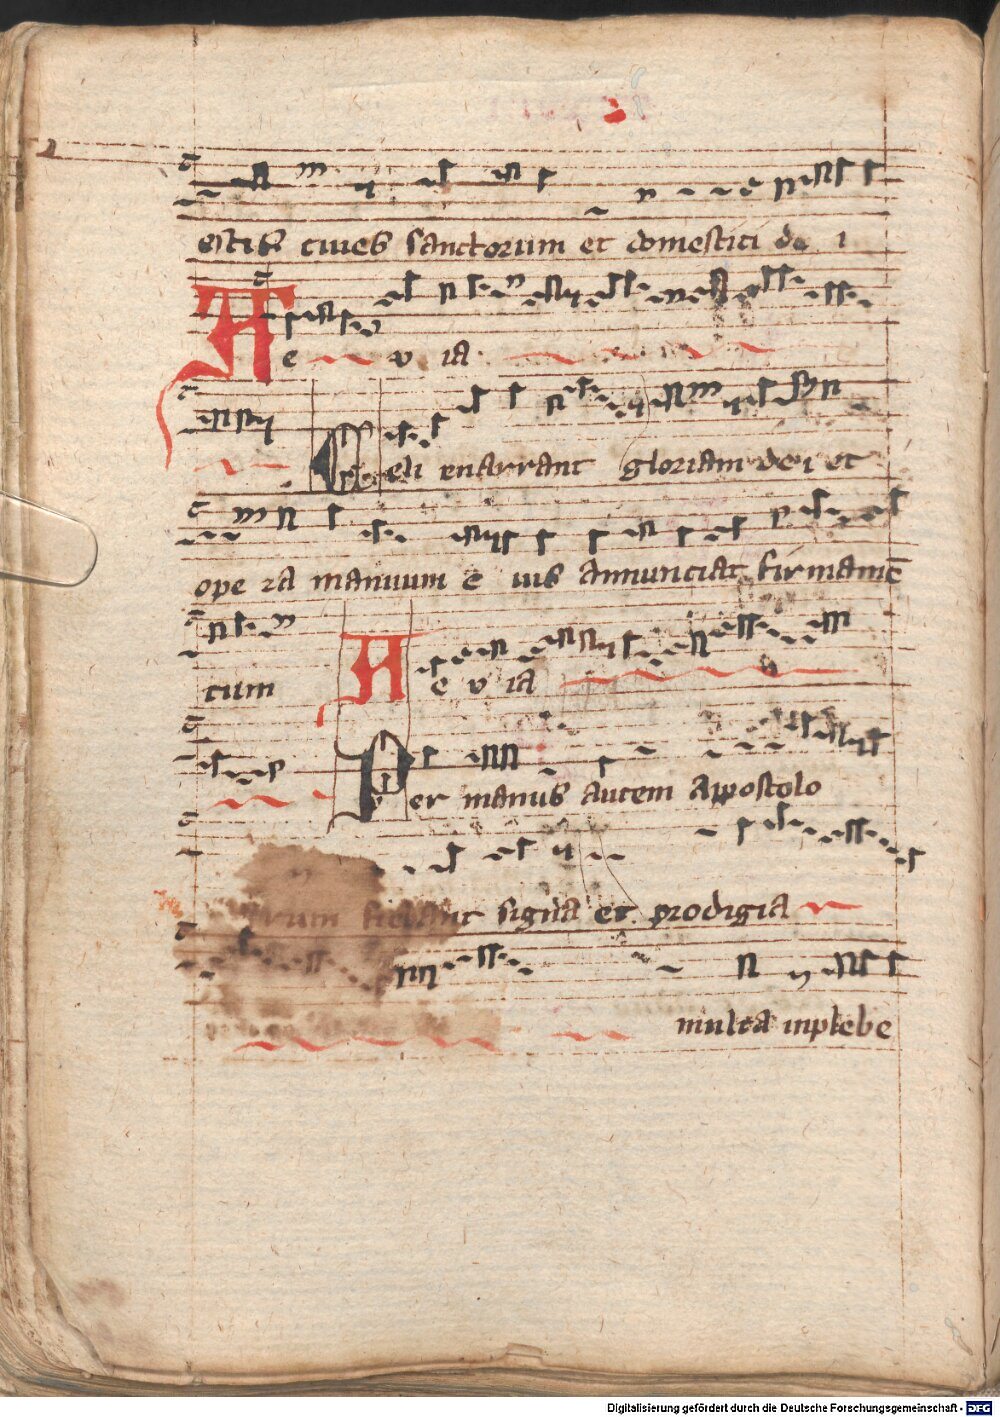 estis ciues sanctorum et domestici de i
A e v ia
Celi enarrant gloriam de i et
ope ra manuum e ius annunciat firmamē
tum A e v ia
Per manus autem appostolo
rum fiebant signa et prodigia
multa inplebe
Digitalisierung gefördert durch die Deutsche Forschungsgemeinschaft - DFG